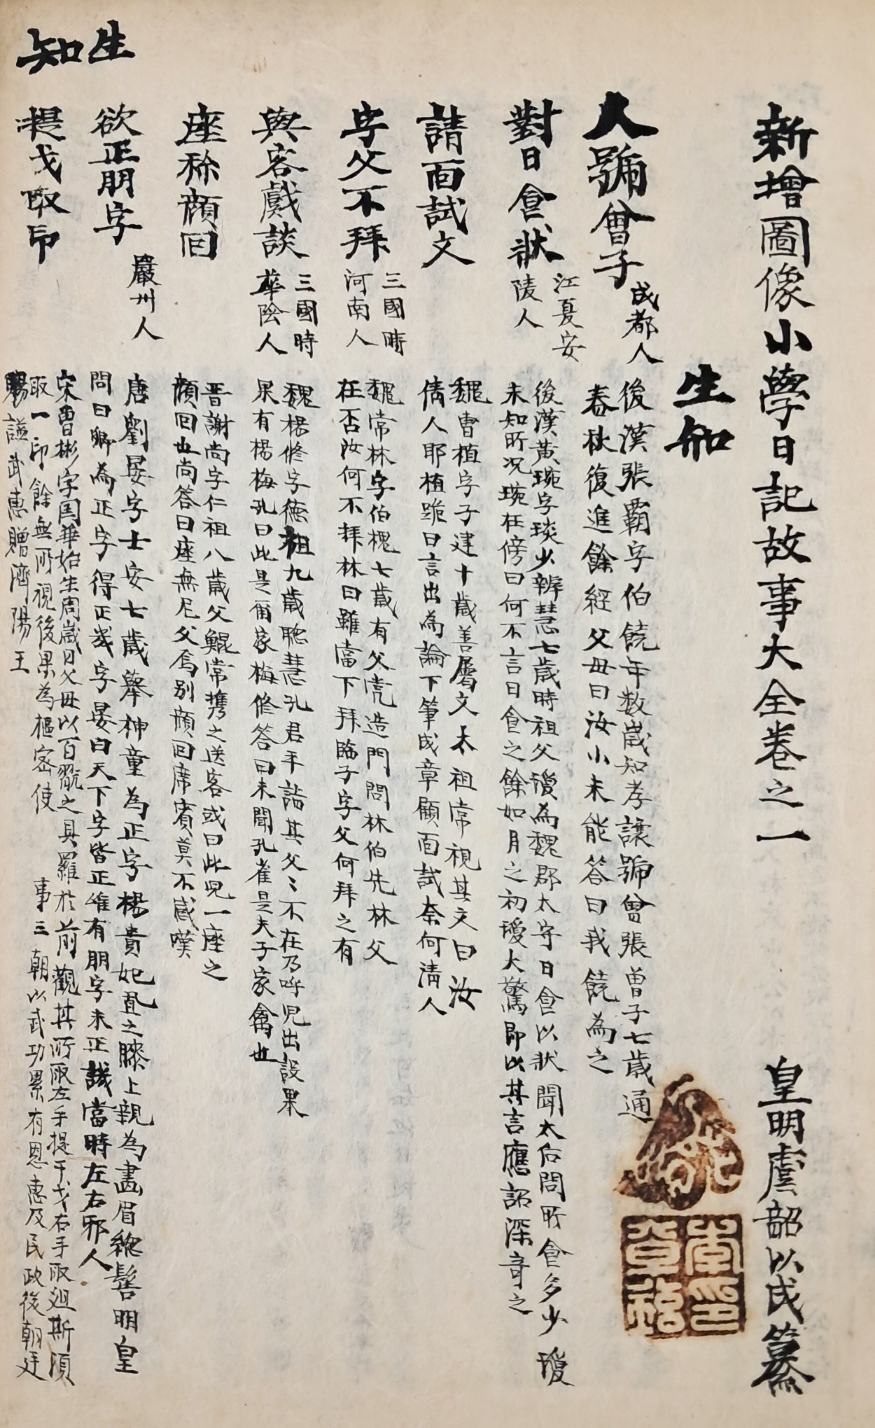 新增圖像小學日記故事大全卷之一
皇明虞韶以成纂
生知
人號曾子
成都人
後漢張霸字伯饒年数歲知孝讓號曾張曾子七歲通
春秋復進餘經父毋曰汝小未能答曰我饒為之
對日食狀
江夏安
陵人
後漢黃琬字琰少辨慧七歲時祖父瓊為魏郡太守日食以狀聞太后問所食多少瓊
未知所况琬在傍曰何不言日食之餘如月之初瓊大驚即以其言應詔深奇之
請面試文
魏曹植字子建十歲善屬文太祖常視其文曰汝
倩人耶植跪曰言出為論下筆成章顧面試奈何淸人
字父不拜
三國時
河南人
魏常林字伯槐七歲有父党造門問林伯先林父
在否汝何不拜林曰雖當下拜臨子字父何拜之有
與客戲談
三國時
華陰人
魏楊修字德祖九歲聰慧孔君平詣其父〻不在乃呼児出設果
果有楊梅孔曰此是君家梅修答曰未聞孔雀是夫子家禽也
座称顔回
晋謝尚字仁祖八歲父鯤常携之送客或曰此児一座之
顔回也尚答曰座無尼父焉别顔回席賓莫不咸嘆
欲正朋字
嚴州人
唐劉晏字士安七歲舉神童為正字楊貴妃置之膝上親為畫眉總髻明皇
問曰卿為正字得正幾字晏曰天下字皆正唯有朋字未正譏當時左右邪人
提戈取印
宋曹彬字国華始生周歲日父母以百翫之具羅於前觀其所取左手提干戈右手取俎斯須
取一印餘無所視後果為樞密使 事三朝以武功累有恩惠及民政後朝廷
賜謚武惠贈濟陽王
生知